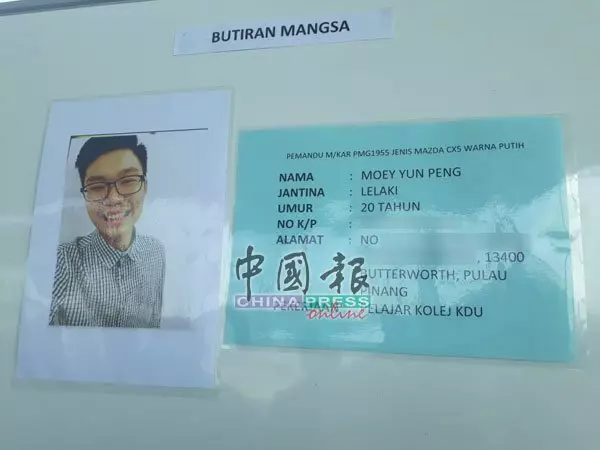 BUTIRAN MANGSA
PEMANDU M/KAR PMG1955 JENIS MAZDA CX5 WARNA PUTIH
NAMA : MOEY YUN PENG
JANTINA : LELAKI
UMUR : 20 TAHUN
NO K/P :
ALAMAT : NO
, 13400
BUTTERWORTH, PULAU
PINANG
PELAJAR KOLEJ KDU
中國報
CHINA PRESS
online